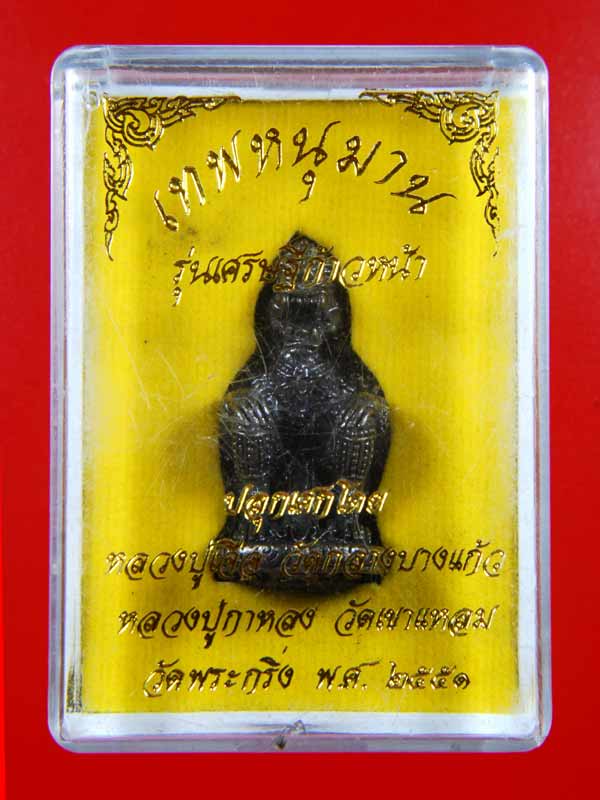 เทพหนุมาน
รุ่นเศรษฐีก้าวหน้า
ปลุกเสกโดย
หลวงปู่เจือ วัดกลางบางแก้ว
หลวงปู่กาหลง วัดเขาแหลม
วัดพระกริ่ง พ.ศ. ๒๕๕๑